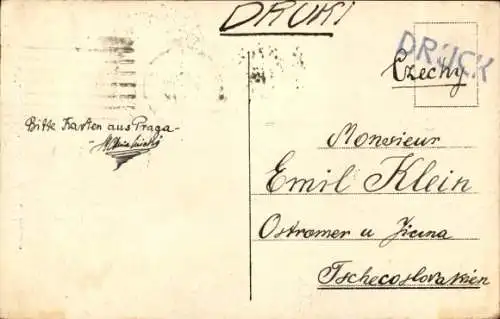 DRUKI
DRUCK
Czechy
Bitte Karten aus Praga
Monsieur
Emil Klein
Ostromer u Jicina
Tschecoslovakien